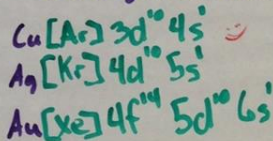 Cu [Ar] 3d¹⁰ 4s¹
Ag [Kr] 4d¹⁰ 5s¹
Au [Xe] 4f¹⁴ 5d¹⁰ 6s¹